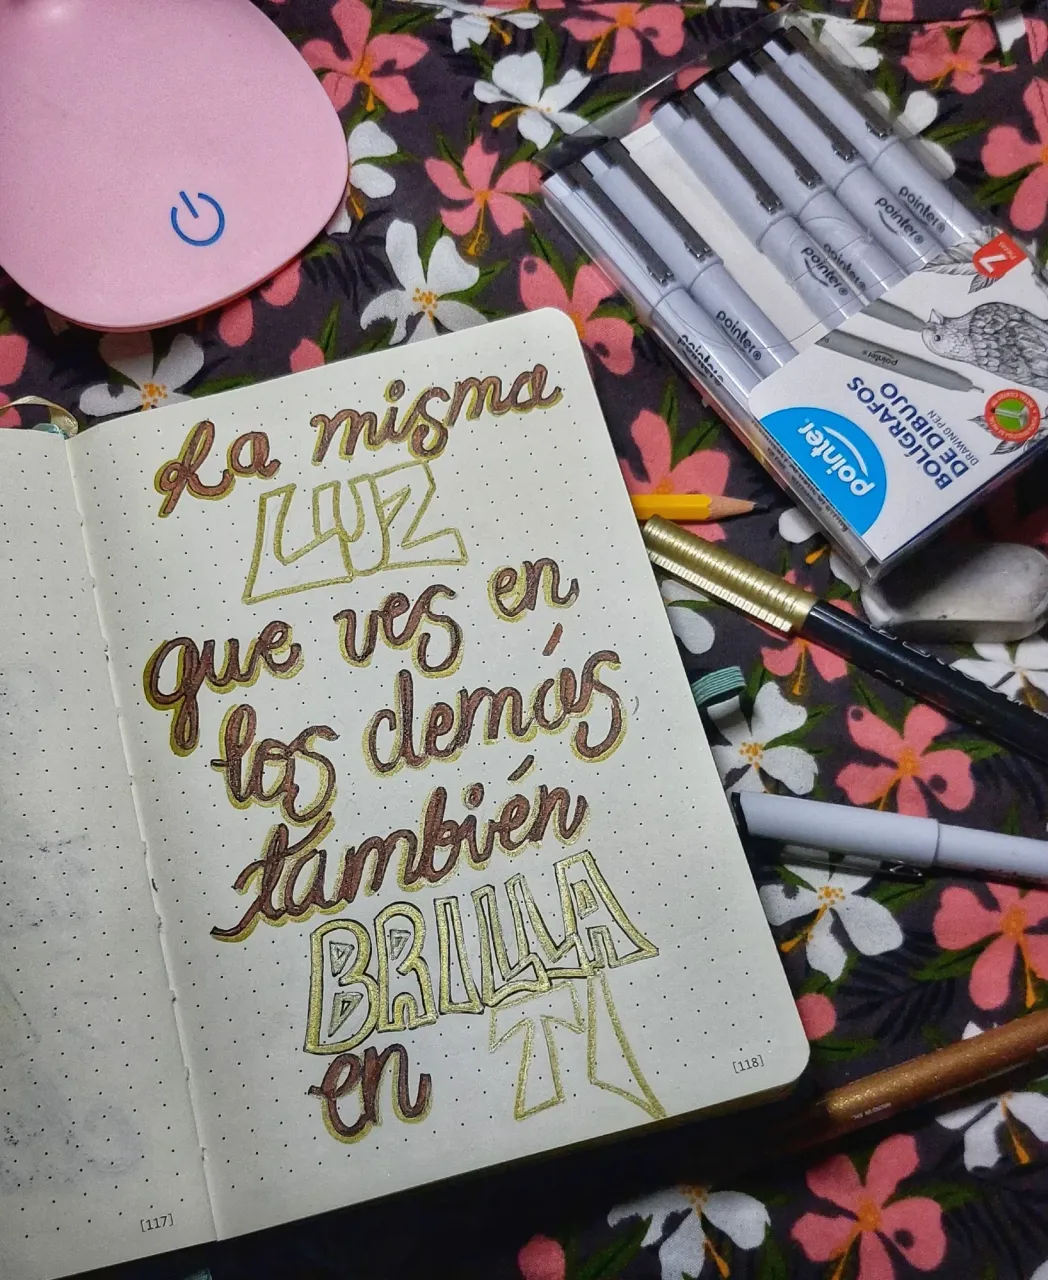 La misma
LUZ
que ves en
los demás,
también
BRILLA
en TI
[117]
[118]
pointer®
pointer®
pointer®
pointer®
pointer®
pointer
pointer
pointer®
7
BOLÍGRAFOS
DE DIBUJO
DRAWING PEN